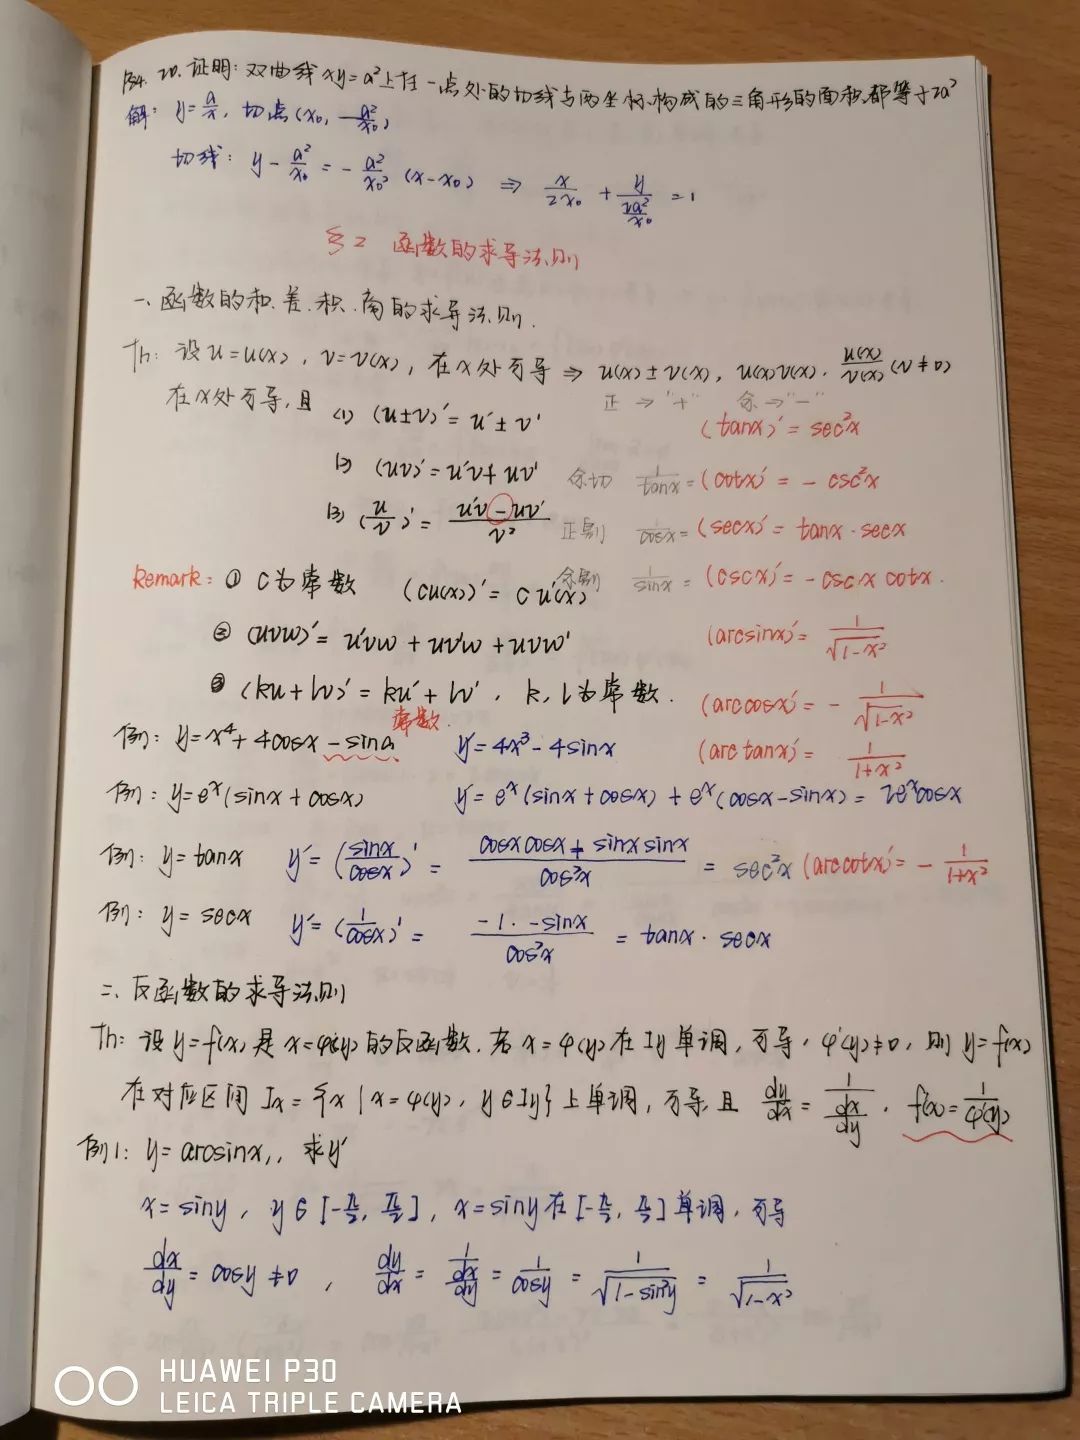 P84. 20. 证明: 双曲线 xy = a² 上任一点处的切线与两坐标构成的三角形的面积都等于2a²
解: y = a/x, 切点(x₀, a²/x₀)
切线: y - a²/x₀ = - a²/x₀² (x - x₀) ⇒ x/2x₀ + y/(2a²/x₀) = 1
§2 函数的求导法则
一、函数的和、差、积、商的求导法则.
Th: 设 u = u(x), v = v(x), 在x处可导 ⇒ u(x) ± v(x), u(x)v(x), u(x)/v(x) (v ≠ 0)
在x处可导, 且 正 → "+" 余 → "-"
(1) (u±v)' = u' ± v' (tanx)' = sec²x
(2) (uv)' = u'v + uv' 余切 1/tanx = (cotx)' = - csc²x
(3) (u/v)' = (u'v - uv')/v² 正割 1/cosx = (secx)' = tanx · secx
Remark: ① C为常数 (cu(x))' = cu'(x) 余割 1/sinx = (cscx)' = - cscx cotx.
② (uvw)' = u'vw + uv'w + uvw' (arcsinx)' = 1/√(1-x²)
③ (ku + lv)' = ku' + lv', k, l为常数. (arccosx)' = - 1/√(1-x²)
常数.
例: y = x⁴ + 4cosx - sina y' = 4x³ - 4sinx (arctanx)' = 1/(1+x²)
例: y = eˣ(sinx + cosx) y' = eˣ(sinx + cosx) + eˣ(cosx - sinx) = 2eˣcosx
例: y = tanx y' = (sinx/cosx)' = (cosxcosx + sinxsinx)/cos²x = sec²x (arccotx)' = - 1/(1+x²)
例: y = secx y' = (1/cosx)' = (-1 · -sinx)/cos²x = tanx · secx
二、反函数的求导法则
Th: 设 y = f(x) 是 x = φ(y) 的反函数. 若 x = φ(y) 在 Iy 单调, 可导, φ'(y) ≠ 0, 则 y = f(x)
在对应区间 Ix = {x | x = φ(y), y ∈ Iy} 上单调, 可导, 且 dy/dx = 1/(dx/dy), f'(x) = 1/φ'(y)
例1: y = arcsinx, 求y'
x = siny, y ∈ [-π/2, π/2], x = siny 在 [-π/2, π/2] 单调, 可导
dx/dy = cosy ≠ 0, dy/dx = 1/(dx/dy) = 1/cosy = 1/√(1-sin²y) = 1/√(1-x²)
HUAWEI P30
LEICA TRIPLE CAMERA